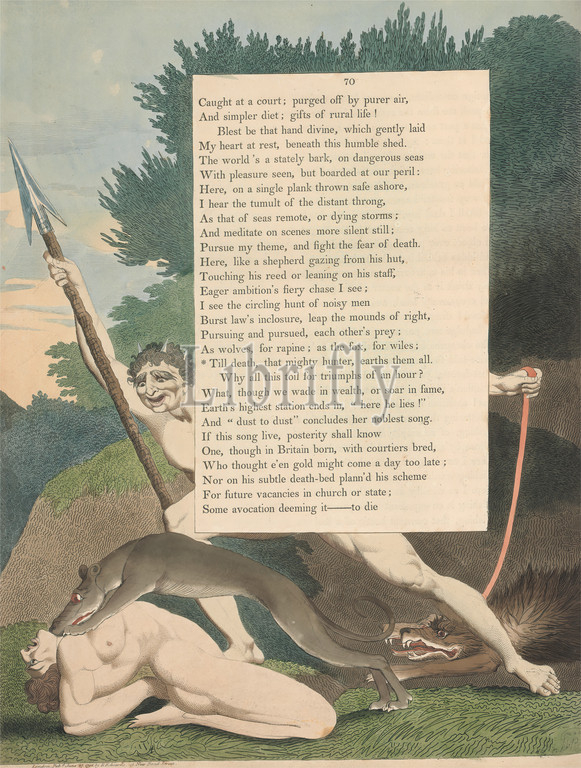 70
Caught at a court; purged off by purer air,
And simpler diet; gifts of rural life!
Blest be that hand divine, which gently laid
My heart at rest, beneath this humble shed.
The world 's a stately bark, on dangerous seas
With pleasure seen, but boarded at our peril:
Here, on a single plank thrown safe ashore,
I hear the tumult of the distant throng,
As that of seas remote, or dying storms;
And meditate on scenes more silent still;
Pursue my theme, and fight the fear of death.
Here, like a shepherd gazing from his hut,
Touching his reed or leaning on his staff,
Eager ambition's fiery chase I see;
I see the circling hunt of noisy men
Burst law's inclosure, leap the mounds of right,
Pursuing and pursued, each other's prey;
As wolves, for rapine; as the fox, for wiles;
* Till death, that mighty hunter, earths them all.
Why all this toil for triumphs of an hour?
What though we wade in wealth, or soar in fame,
Earth's highest station ends in, "here he lies!"
And "dust to dust" concludes her noblest song.
If this song live, posterity shall know
One, though in Britain born, with courtiers bred,
Who thought e'en gold might come a day too late;
Nor on his subtle death-bed plann'd his scheme
For future vacancies in church or state;
Some avocation deeming it——to die
Librifly